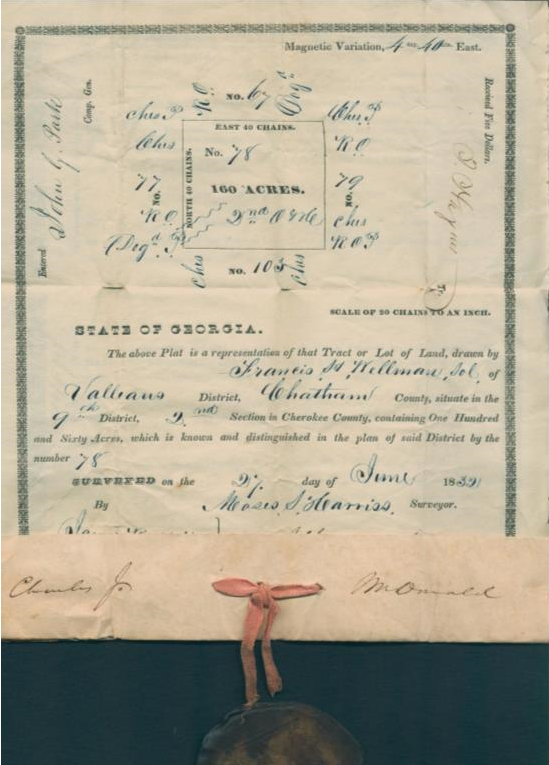 Magnetic Variation, 4 deg. 40 m. East.
Entered
John G. Park
Comp. Gen.
Received Five Dollars,
NO. 67
Ches P
R.O.
Deg.d
Ches P
Ches
R.O.
77
NO.
79
NO.
R O
Deg.d P
Ches
R O P
EAST 40 CHAINS.
NORTH 40 CHAINS.
No. 78
160 ACRES.
2nd
Ches
NO. 103
Ches
SCALE OF 20 CHAINS TO AN INCH.
STATE OF GEORGIA.
The above Plat is a representation of that Tract or Lot of Land, drawn by
Francis H Wellman, Sol. of
Valleaus District, Chatham County, situate in the
9th District, 2nd Section in Cherokee County, containing One Hundred
and Sixty Acres, which is known and distinguished in the plan of said District by the
number 78
SURVEYED on the 27 day of June 1832
By Moses S. Harriss, Surveyor.
Charles J McDonald